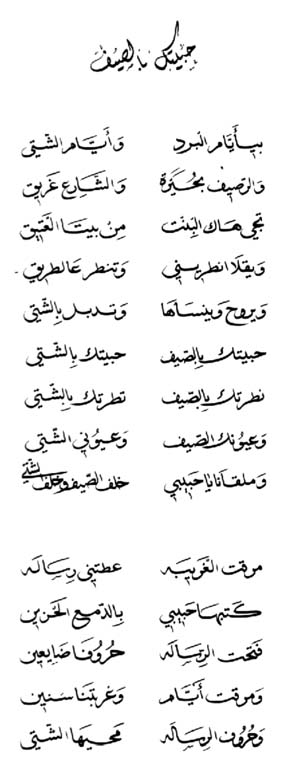 حبيتك بالصيف
بيأيّام البرد وأيّام الشتي
والرصيف بحيرة والشارع غريق
تجي هاك البنت من بيتا العتيق
ويقلا انطريني وتنطر عالطريق
ويروح وينساها وتدبل بالشتي
حبيتك بالصيف حبيتك بالشتي
نطرتك بالصيف نطرتك بالشتي
وعيونك الصيف وعيوني الشتي
وملقانا يا حبيبي خلف الصيف وخلف الشتي
مرقت الغريبه عطتني رساله
كتبها حبيبي بالدمع الحزين
فتحت الرساله حروفا ضايعين
ومرقت أيّام وغربتنا سنين
وحروف الرساله محيها الشتي